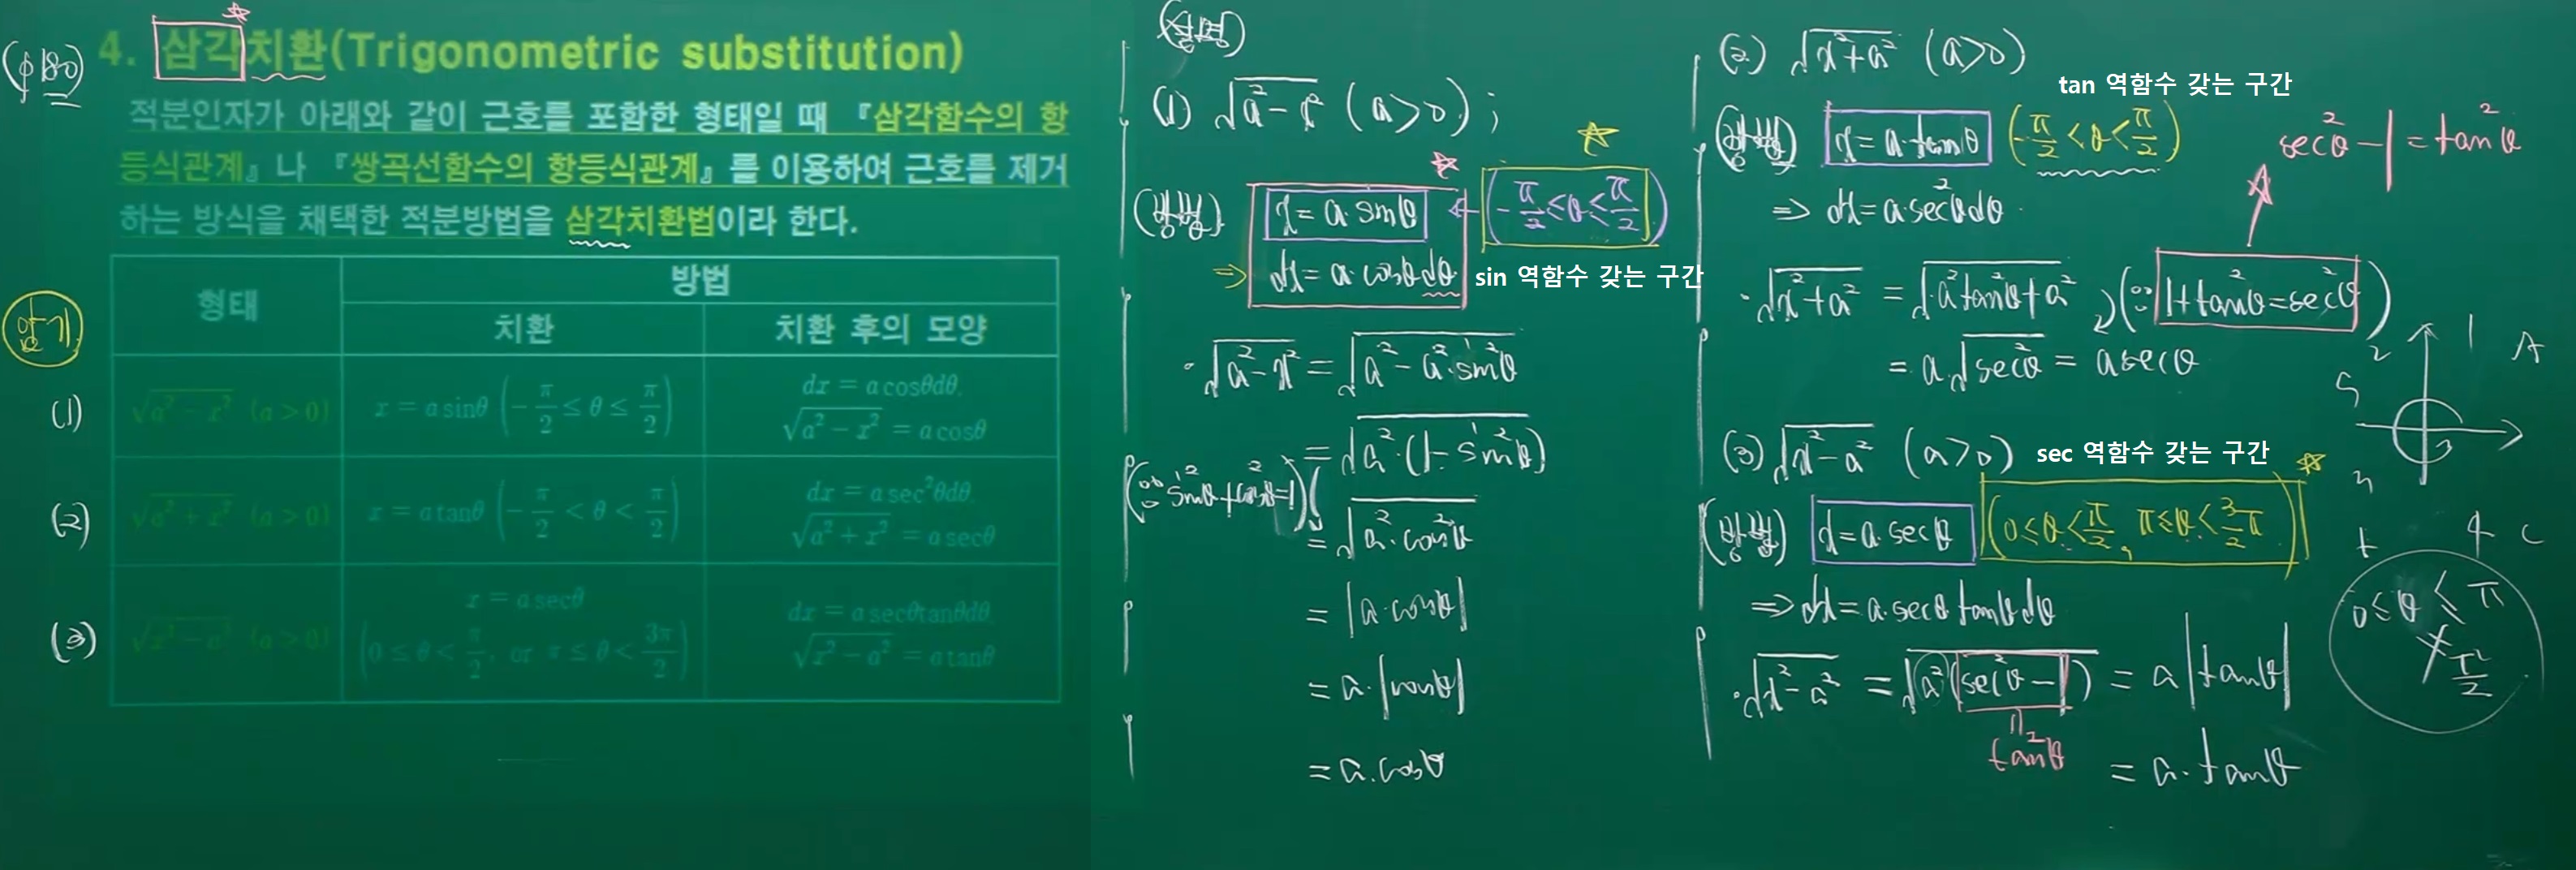 (p180) 4. 삼각치환(Trigonometric substitution)
적분인자가 아래와 같이 근호를 포함한 형태일 때 『삼각함수의 항
등식관계』나 『쌍곡선함수의 항등식관계』를 이용하여 근호를 제거
하는 방식을 채택한 적분방법을 삼각치환법이라 한다.
암기
형태 방법
치환 치환 후의 모양
(1) √(a²−x²) (a>0) x = a sinθ (−π/2 ≤ θ ≤ π/2) dx = a cosθdθ.
√(a²−x²) = a cosθ
(2) √(a²+x²) (a>0) x = a tanθ (−π/2 < θ < π/2) dx = a sec²θdθ.
√(a²+x²) = a secθ
(3) √(x²−a²) (a>0) x = a secθ
(0 ≤ θ < π/2, or π ≤ θ < 3π/2) dx = a secθtanθdθ.
√(x²−a²) = a tanθ
(설명)
(1) √(a²−x²) (a>0) ;
(방법) x = a·sinθ ← (−π/2 ≤ θ ≤ π/2)
⇒ dx = a·cosθdθ
sin 역함수 갖는 구간
·√(a²−x²) = √(a²−a²·sin²θ)
= √(a²·(1−sin²θ))
(∵ sin²θ+cos²θ=1)
= √(a²·cos²θ)
= |a·cosθ|
= a·|cosθ|
= a·cosθ
(2) √(x²+a²) (a>0)
tan 역함수 갖는 구간
(방법) x = a·tanθ (−π/2 < θ < π/2)
sec²θ − 1 = tan²θ
⇒ dx = a·sec²θdθ
·√(x²+a²) = √(a²tan²θ+a²) (∵ 1+tan²θ=sec²θ)
= a·√(sec²θ) = a secθ
1 A
2 S
3 t
4 C
(3) √(x²−a²) (a>0)
sec 역함수 갖는 구간
(방법) x = a·secθ (0≤θ<π/2, π≤θ<3/2π)
⇒ dx = a·secθ tanθdθ
0≤θ≤π
≠ π/2
·√(x²−a²) = √(a²(sec²θ−1)) = a|tanθ|
tan²θ
= a·tanθ